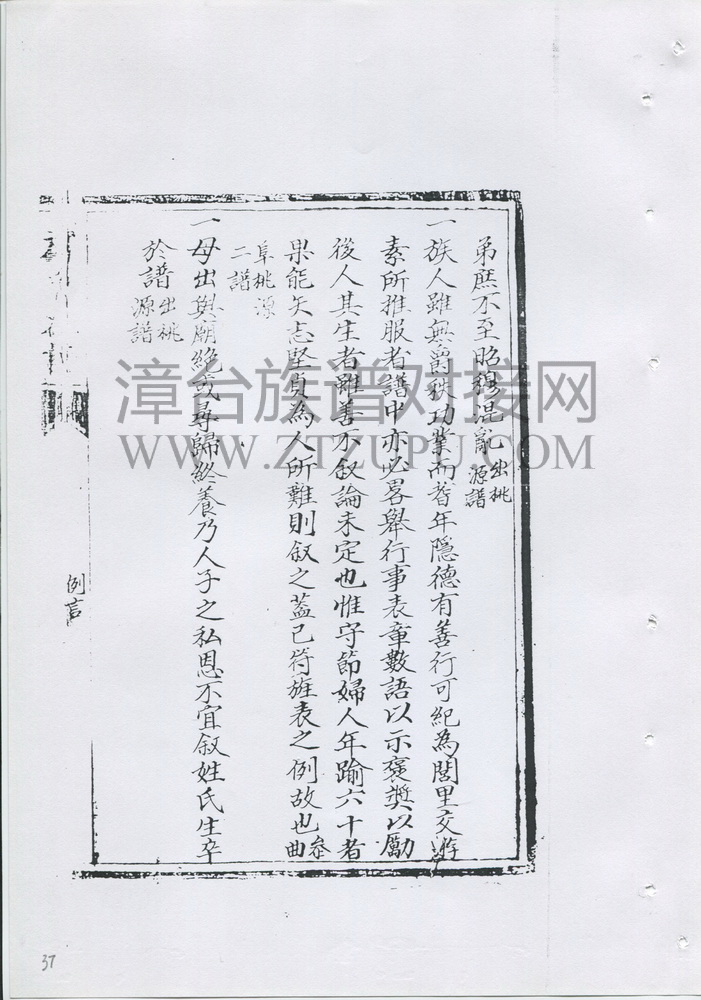 弟庶不至昭穆混亂出桃源譜
一族人雖無爵秩功業而耆年隱德有善行可紀為閭里交游
素所推服者譜中亦必畧舉行事表章數語以示褒奬以勵
後人其生者雖善不叙論未定也惟守節婦人年踰六十者
果能矢志堅貞為人所難則叙之蓋已符旌表之例故也叅曲
阜桃源二譜
一母出與廟絶或尋歸終養乃人子之私恩不宜叙姓氏生卒
於譜出桃源譜
例言
漳台族谱对接网
WWW.ZTZUPU.COM
37